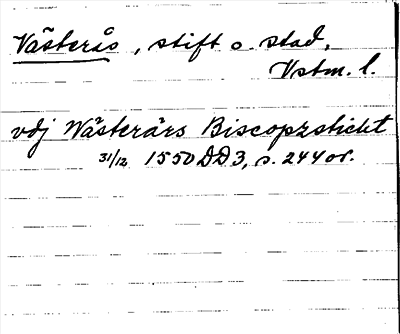 Västerås, stift o. stad,
Vstm. l.
vdj Wästerårs Biscopzstickt
31/12 1550 DD3, s. 244 or.